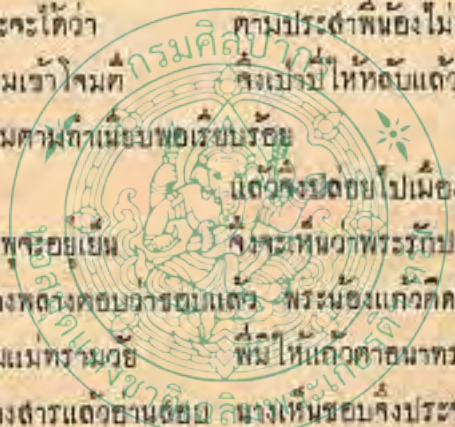 จะได้ว่า ตามประสาพี่น้องไม่
เข้าโจมตี จึงเป่าปี่ให้หลับแล้ว
ตามถ้าเนียบพอเรียบร้อย
แล้วจึงปล่อยไปเมือง
จะอยู่เย็น จึงจะเห็นว่าพระรัก
พลางตอบว่าชอบแล้ว พระน้องแก้วคิด
แม่ทรามวัย พี่มิให้แก้วตาอนาทร
สารแล้วอ่านสอบ นางเห็นชอบจึงประ
กรมศิลปากร
หอสมุดแห่งชาติ เฉลิมพระเกียรติ